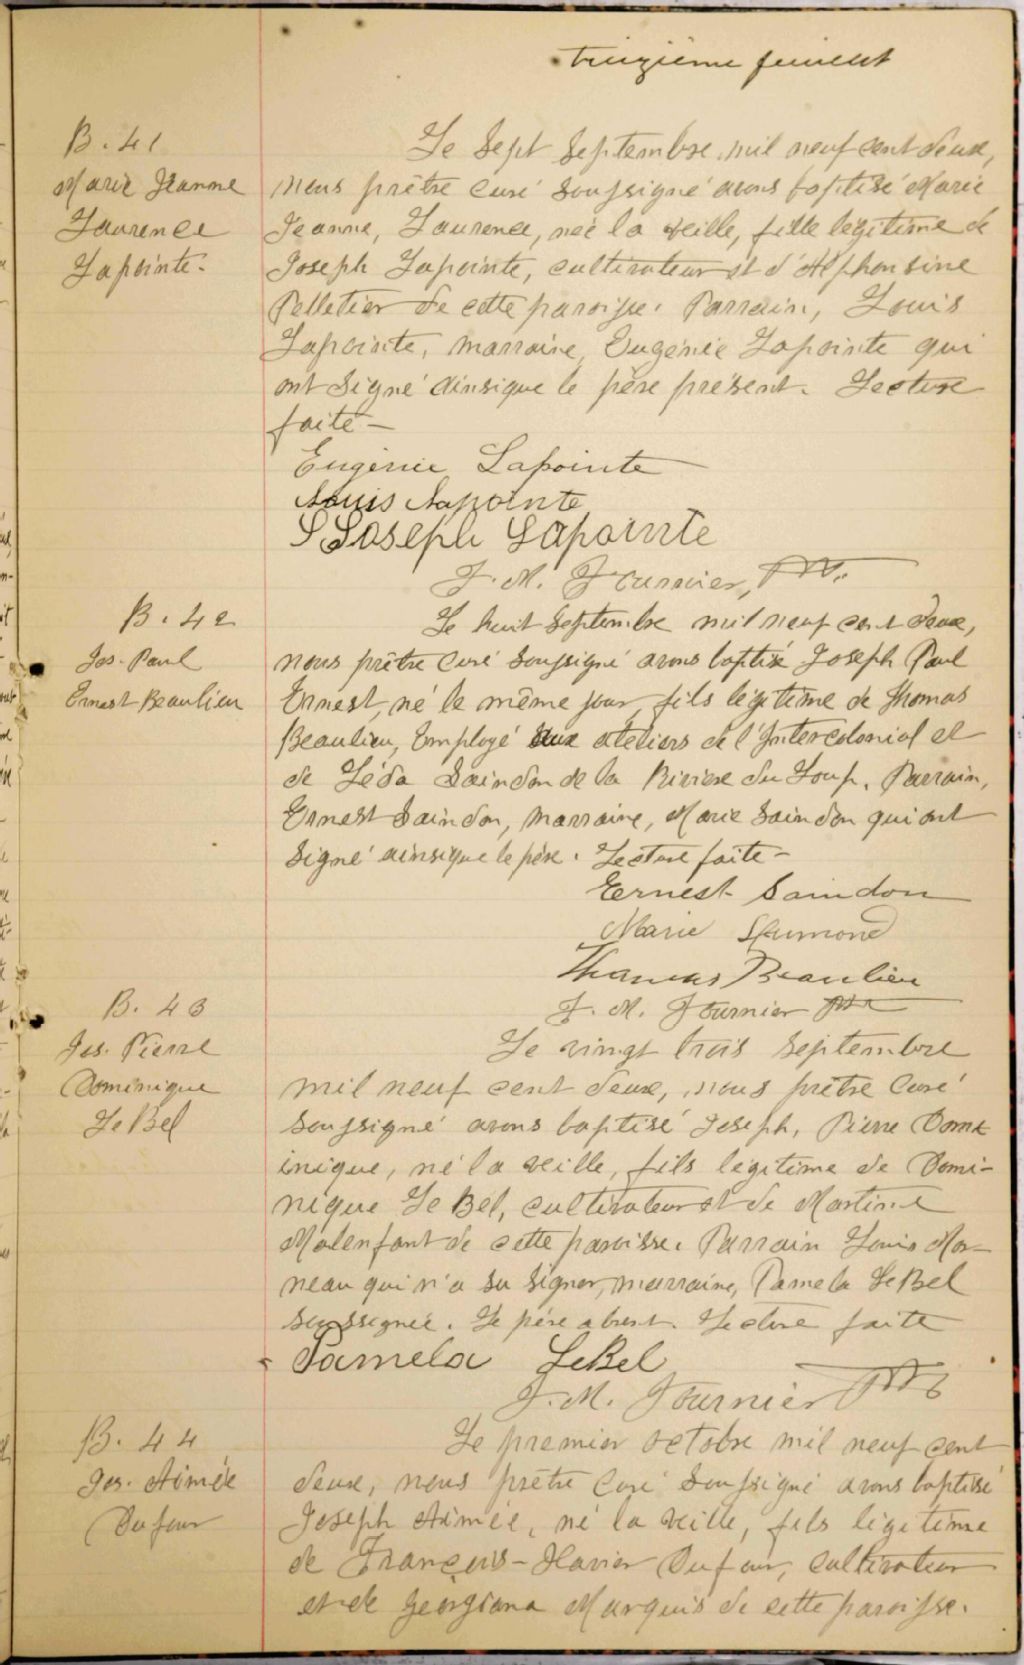 treizième feuillet
B. 41
Marie Jeanne
Laurence
Lapointe.
Le sept septembre mil neuf cent deux,
nous prêtre curé soussigné avons baptisé Marie
Jeanne, Laurence, née la veille, fille légitime de
Joseph Lapointe, cultivateur et d'Alphonsine
Pelletier de cette paroisse. Parrain, Louis
Lapointe, marraine, Eugénie Lapointe qui
ont signé ainsique le père présent. Lecture
faite—
Eugénie Lapointe
Louis Lapointe
Joseph Lapointe
J. M. Fournier, Ptre.
B. 42
Jos. Paul
Ernest Beaulieu
Le huit septembre mil neuf cent deux,
nous prêtre curé soussigné avons baptisé Joseph Paul
Ernest, né le même jour, fils légitime de Thomas
Beaulieu, Employé aux ateliers de l'Intercolonial et
de Léda Saindon de la Rivière du Loup. Parrain,
Ernest Saindon, marraine, Marie Saindon qui ont
signé ainsique le père. Lecture faite—
Ernest Saindon
Marie
Thomas Beaulieu
J. M. Fournier Ptre
B. 43
Jos. Pierre
Dominique
LeBel
Le vingt trois septembre
mil neuf cent deux, nous prêtre curé
soussigné avons baptisé Joseph, Pierre Dom
inique, né la veille, fils légitime de Domi-
nique LeBel, cultivateur et de Martine
Malenfant de cette paroisse. Parrain Louis Mor-
neau qui n'a su signer, marraine, Pamela LeBel
soussignée. Le père absent. Lecture faite
Pamela LeBel
J. M. Fournier Ptre
B. 44
Jos. Aimée
Dufour
Le premier octobre mil neuf cent
deux, nous prêtre curé soussigné avons baptisé
Joseph Aimée, né la veille, fils légitime
de François-Xavier Dufour, cultivateur
et de Georgiana Marquis de cette paroisse.